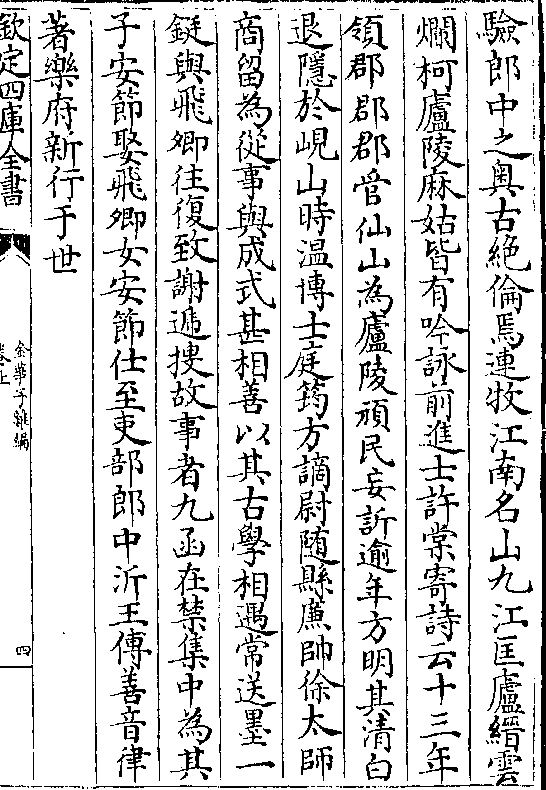 驗郎中之奧古絶倫焉連牧江南名山九江匡廬縉雲
爛柯廬陵麻姑皆有吟詠前進士許棠寄詩云十三年
領郡郡郡管仙山為廬陵頑民妄訴逾年方明其清白
退隱於峴山時温博士庭筠方謫尉随縣㢘帥徐太師
商留為從事與成式甚相善以其古學相遇常送墨一
鋌與飛卿往復致謝遞搜故事者九函在禁集中為其
子安節娶飛卿女安節仕至吏部郎中沂王傅善音律
著樂府新行于世
欽定四庫全書
金華子雜編
卷上
四